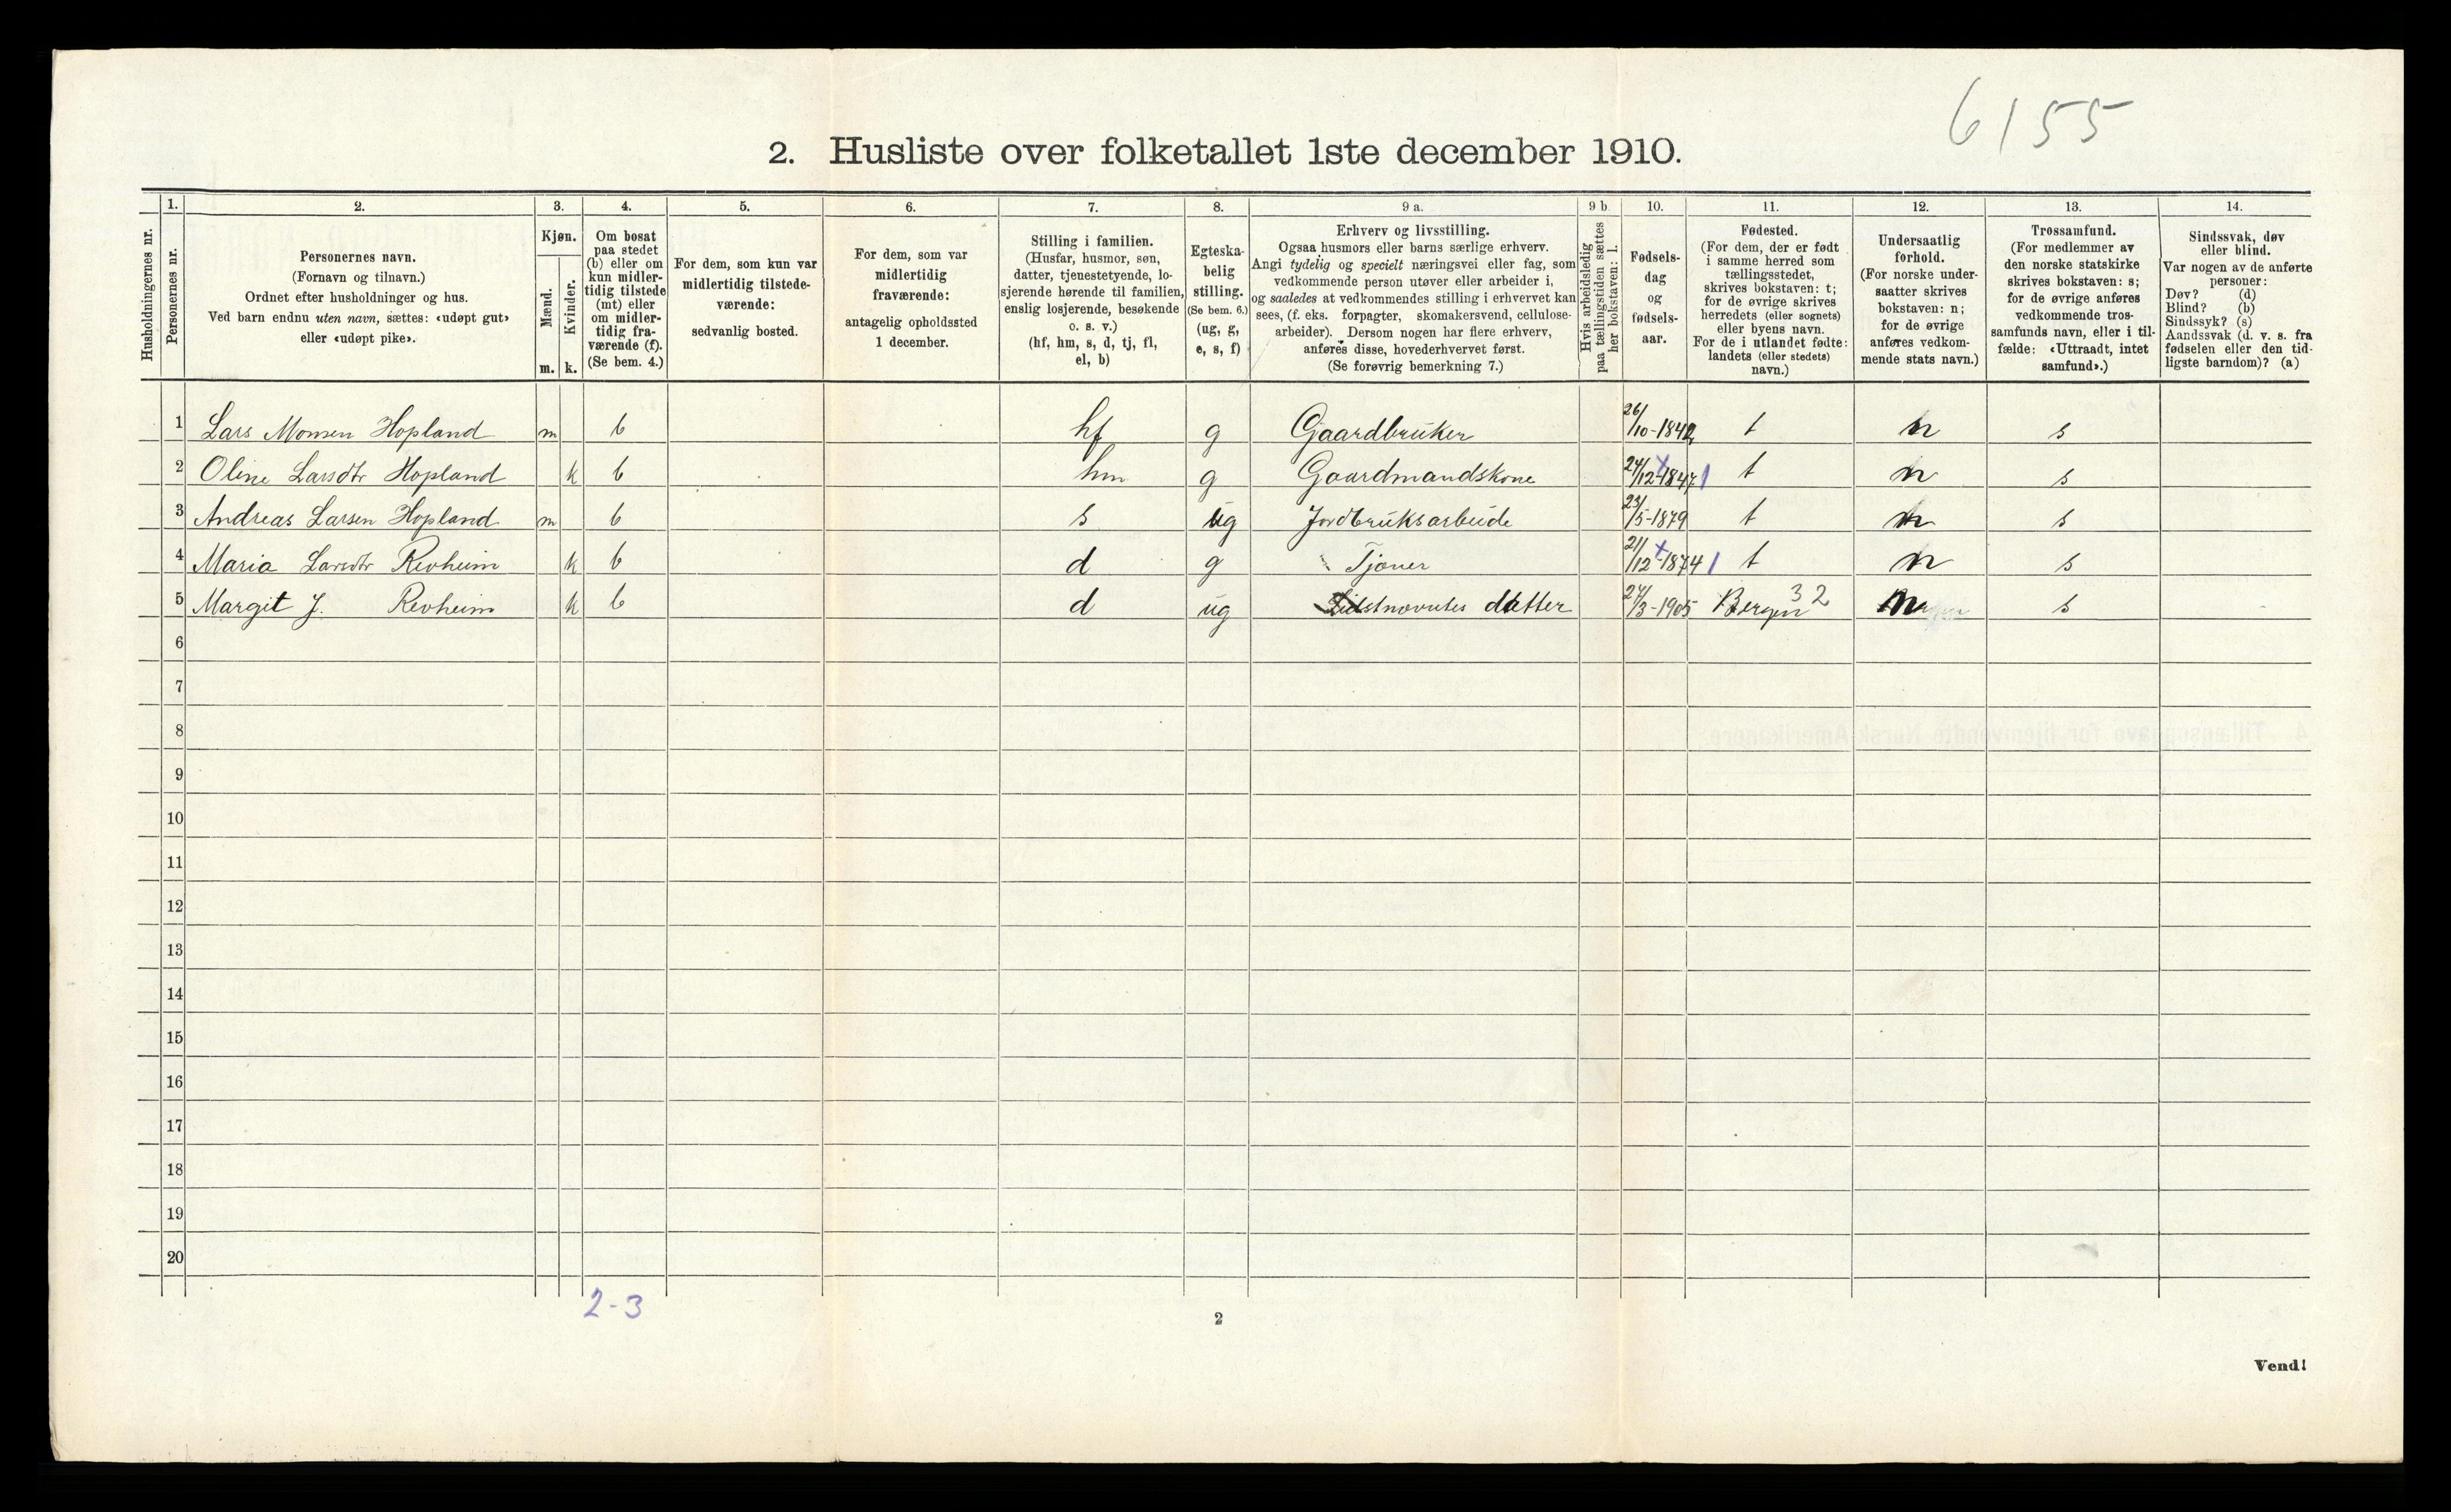 6155
2. Husliste over folketallet 1ste december 1910.
Husholdningernes nr.
1.
Personernes nr.
2.
Personernes navn.
(Fornavn og tilnavn.)
Ordnet efter husholdninger og hus.
Ved barn endnu uten navn, sættes: «udøpt gut»
eller «udøpt pike».
3.
Kjøn.
Mænd.
Kvinder.
m. k.
4.
Om bosat
paa stedet
(b) eller om
kun midler-
tidig tilstede
(mt) eller
om midler-
tidig fra-
værende (f).
(Se bem. 4.)
5.
For dem, som kun var
midlertidig tilstede-
værende:
sedvanlig bosted.
6.
For dem, som var
midlertidig
fraværende:
antagelig opholdssted
1 december.
7.
Stilling i familien.
(Husfar, husmor, søn,
datter, tjenestetyende, lo-
sjerende hørende til familien,
enslig losjerende, besøkende
o. s. v.)
(hf, hm, s, d, tj, fl,
el, b)
8.
Egteska-
belig
stilling.
(Se bem. 6.)
(ug, g,
e, s, f)
9 a.
Erhverv og livsstilling.
Ogsaa husmors eller barns særlige erhverv.
Angi tydelig og specielt næringsvei eller fag, som
vedkommende person utøver eller arbeider i,
og saaledes at vedkommendes stilling i erhvervet kan
sees, (f. eks. forpagter, skomakersvend, cellulose-
arbeider). Dersom nogen har flere erhverv,
anføres disse, hovederhvervet først.
(Se forøvrig bemerkning 7.)
9 b.
Hvis arbeidsledig
paa tællingstiden sættes
her bokstaven: l.
10.
Fødsels-
dag
og
fødsels-
aar.
11.
Fødested.
(For dem, der er født
i samme herred som
tællingsstedet,
skrives bokstaven: t;
for de øvrige skrives
herredets (eller sognets)
eller byens navn.
For de i utlandet fødte:
landets (eller stedets)
navn.)
12.
Undersaatlig
forhold.
(For norske under-
saatter skrives
bokstaven: n;
for de øvrige
anføres vedkom-
mende stats navn.)
13.
Trossamfund.
(For medlemmer av
den norske statskirke
skrives bokstaven: s;
for de øvrige anføres
vedkommende tros-
samfunds navn, eller i til-
fælde: «Uttraadt, intet
samfund».)
14.
Sindssvak, døv
eller blind.
Var nogen av de anførte
personer:
Døv? (d)
Blind? (b)
Sindssyk? (s)
Aandssvak (d. v. s. fra
fødselen eller den tid-
ligste barndom)? (a)
1 Lars Monsen Hopland m b hf g Gaardbruker 26/10-1842 t n s
2 Oline Larsdtr Hopland k b hm g Gaardmandskone 24/12-1847 t n s
3 Andreas Larsen Hopland m b s ug Jordbruksarbeide 23/5-1879 t n s
4 Maria Larsdtr Revheim k b d g Tjener 21/12-1874 t n s
5 Margit J. Revheim k b d ug Sidstnævntes datter 27/3-1905 Bergen 32 n s
6
7
8
9
10
11
12
13
14
15
16
17
18
19
20
2-3
2
Vend!